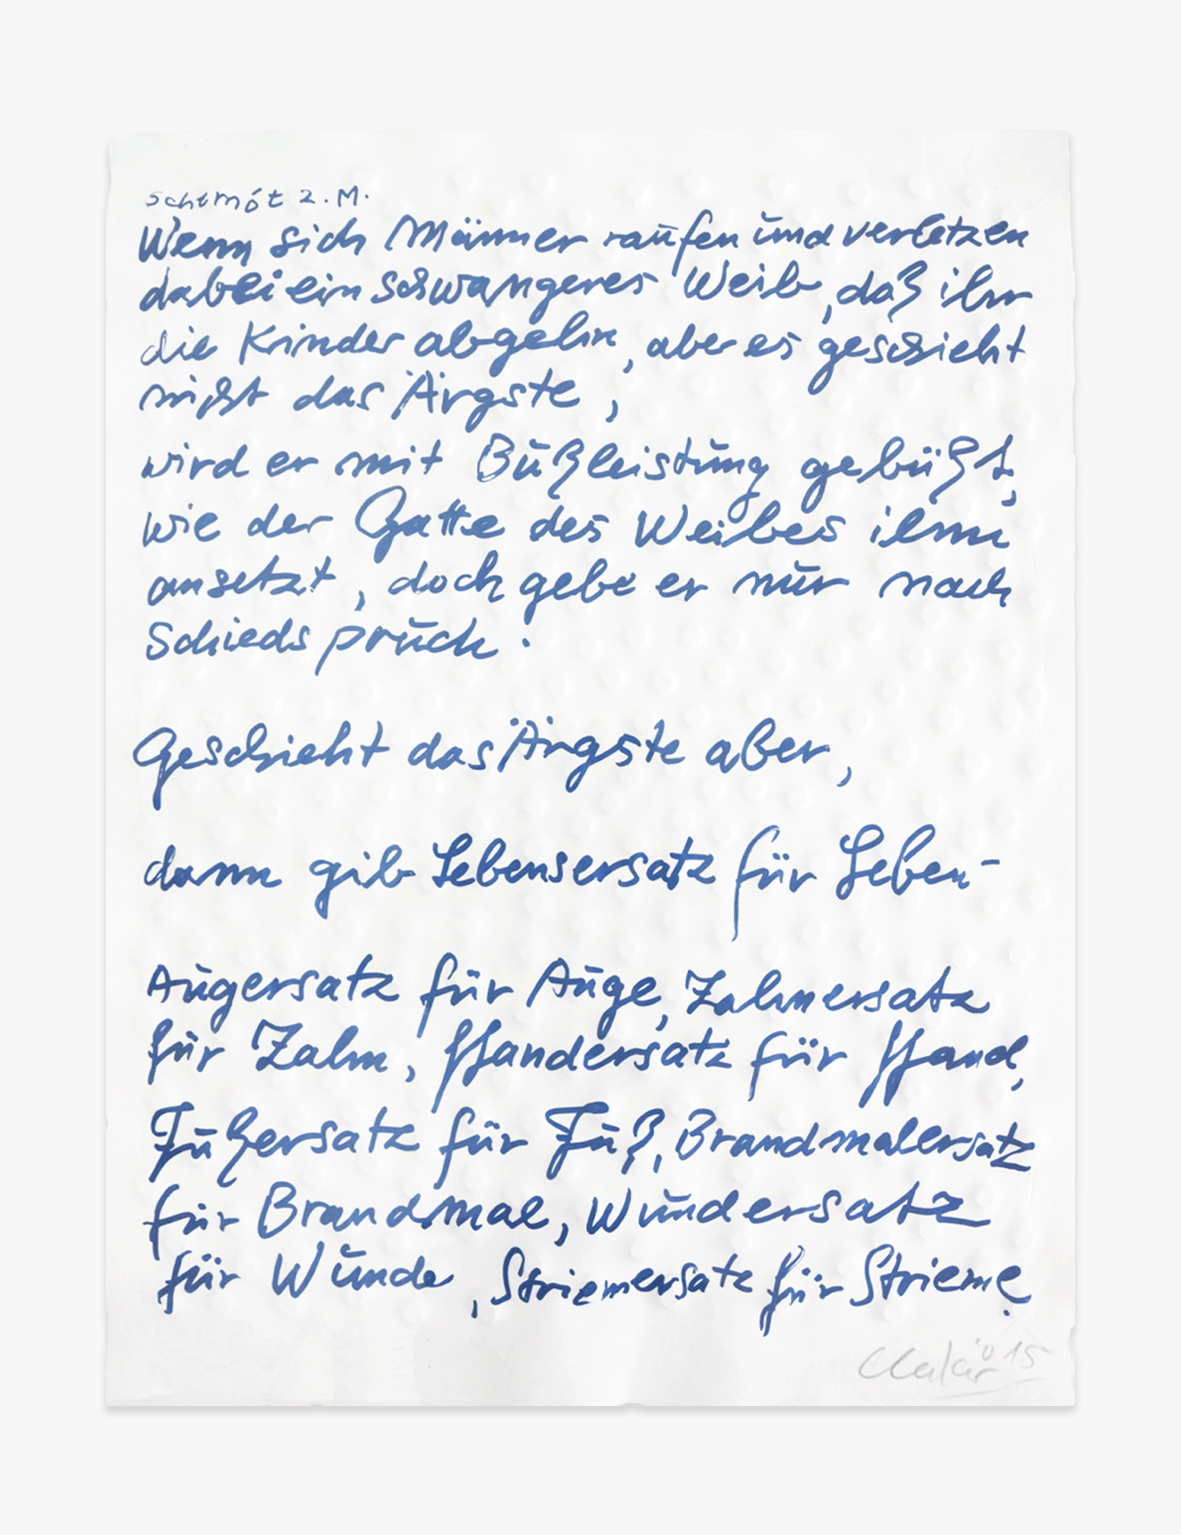 Schemót 2.M.
Wenn sich Männer raufen und verletzen
dabei ein schwangeres Weib, daß ihr
die Kinder abgehn, aber es geschieht
nicht das Ärgste,
wird er mit Bußleistung gebüßt,
wie der Gatte des Weibes ihm
ansetzt, doch gebe er nur nach
Schiedspruch.
Geschieht das Ärgste aber,
dann gib Lebensersatz für Leben-
Augersatz für Auge, Zahnersatz
für Zahn, Handersatz für Hand,
Fußersatz für Fuß, Brandmalersatz
für Brandmal, Wundersatz
für Wunde, Striemersatz für Strieme.
15